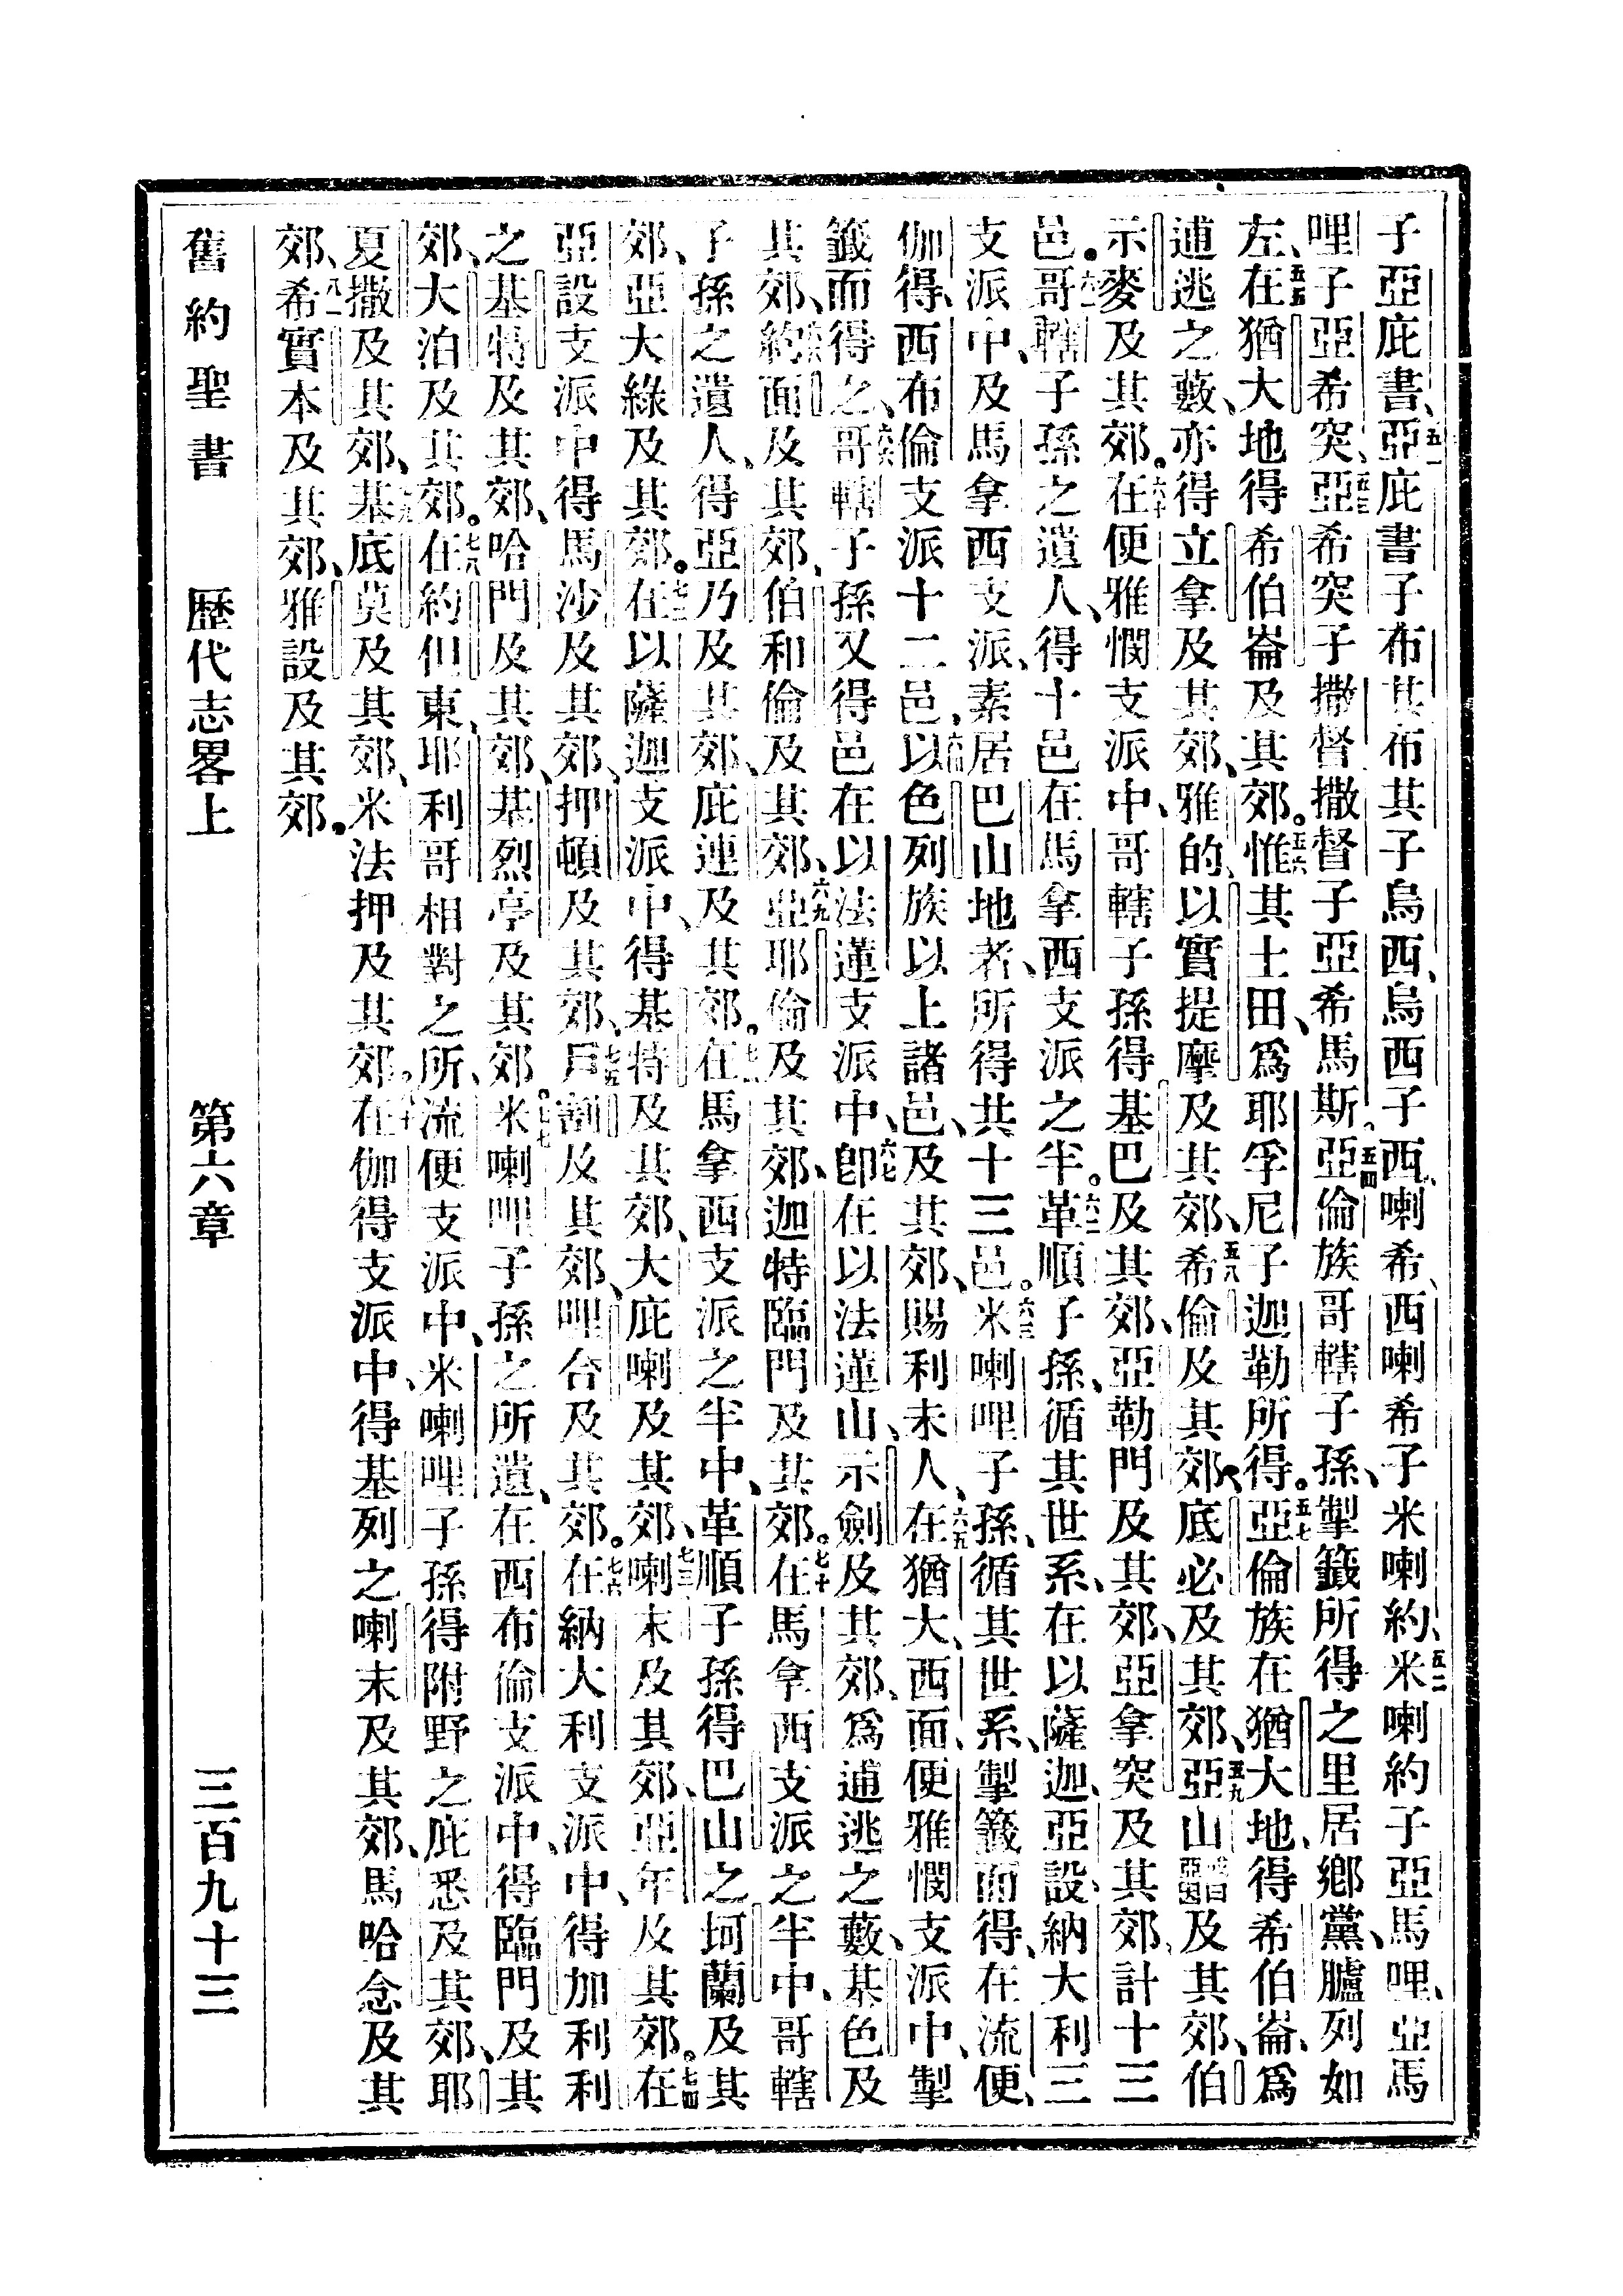 子亞庇書、五一亞庇書子布其布其子烏西、烏西子西喇希、西喇希子米喇約、五二米喇約子亞馬哩、亞馬
哩子亞希突、五三亞希突子撒督撒督子亞希馬斯。五四亞倫族哥轄子孫、掣籤所得之里居鄉黨、臚列如
左、五五在猶大地得希伯崙及其郊。五六惟其土田、爲耶孚尼子迦勒所得。五七亞倫族在猶大地、得希伯崙、爲
逋逃之藪、亦得立拿及其郊、雅的、以實提摩及其郊、五八希倫及其郊、底必及其郊、五九亞山或曰亞因及其郊、伯
示麥及其郊。六十在便雅憫支派中、哥轄子孫得基巴及其郊、亞勒門及其郊、亞拿突及其郊、計十三
邑。六一哥轄子孫之遺人、得十邑在馬拿西支派之半。六二革順子孫、循其世系、在以薩迦、亞設、納大利三
支派中、及馬拿西支派、素居巴山地者、所得共十三邑。六三米喇哩子孫、循其世系、掣籤而得、在流便、
伽得、西布倫支派十二邑、六四以色列族以上諸邑、及其郊、賜利未人、六五在猶大、西面、便雅憫支派中、掣
籤而得之、六六哥轄子孫又得邑在以法蓮支派中、六七卽在以法蓮山、示劍及其郊、爲逋逃之藪、基色及
其郊、六八約面及其郊、伯和倫及其郊、六九亞耶倫及其郊、迦特臨門及其郊。七十在馬拿西支派之半中、哥轄
子孫之遺人、得亞乃及其郊、庇連及其郊。七一在馬拿西支派之半中、革順子孫得巴山之坷蘭及其
郊、亞大綠及其郊。七二在以薩迦支派中、得基特及其郊、大庇喇及其郊、七三喇末及其郊、亞年及其郊。七四在
亞設支派中得馬沙及其郊、押頓及其郊、七五戶割及其郊、哩合及其郊。七六在納大利支派中、得加利利
之基特及其郊、哈門及其郊、基烈亭及其郊。七七米喇哩子孫之所遺、在西布倫支派中、得臨門及其
郊、大泊及其郊。七八在約但東、耶利哥相對之所、流便支派中、米喇哩子孫得附野之庇悉及其郊、耶
夏撒及其郊、七九基底莫及其郊、米法押及其郊。八十在伽得支派中、得基列之喇末及其郊、馬哈念及其
郊、八一希實本及其郊、雅設及其郊。
舊約聖書 歷代志畧上 第六章 三百九十三